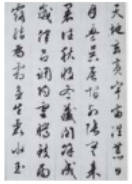 天地玄黃宇宙洪荒日
月盈昃辰宿列張寒來
暑往秋收冬藏閏餘成
歲律呂調陽雲騰致雨
露結為霜金生麗水玉